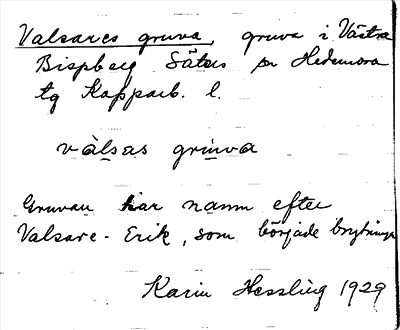 Valsares gruva, gruva i Västra
Bispberg Säters sn Hedemora
tg Kopparb. l.
vàlsas gruva
Gruvan har namn efter
Valsare-Erik, som började brytninge
Karin Hessling 1929